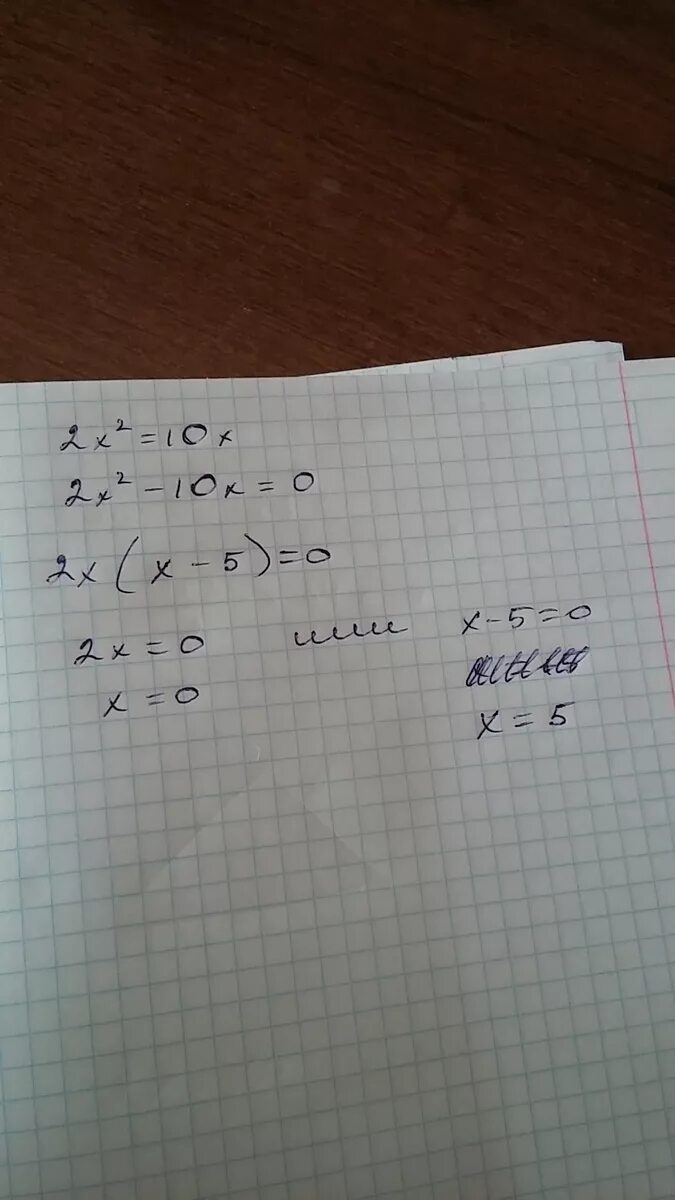 2x² = 10x
2x² - 10x = 0
2x(x - 5) = 0
2x = 0 или x - 5 = 0
x = 0 x = 5